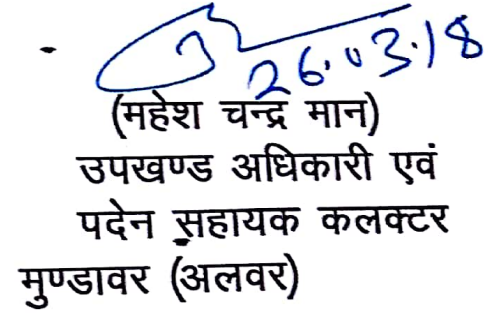 26.03.18
(महेश चन्द्र मान)
उपखण्ड अधिकारी एवं
पदेन सहायक कलक्टर
मुण्डावर (अलवर)